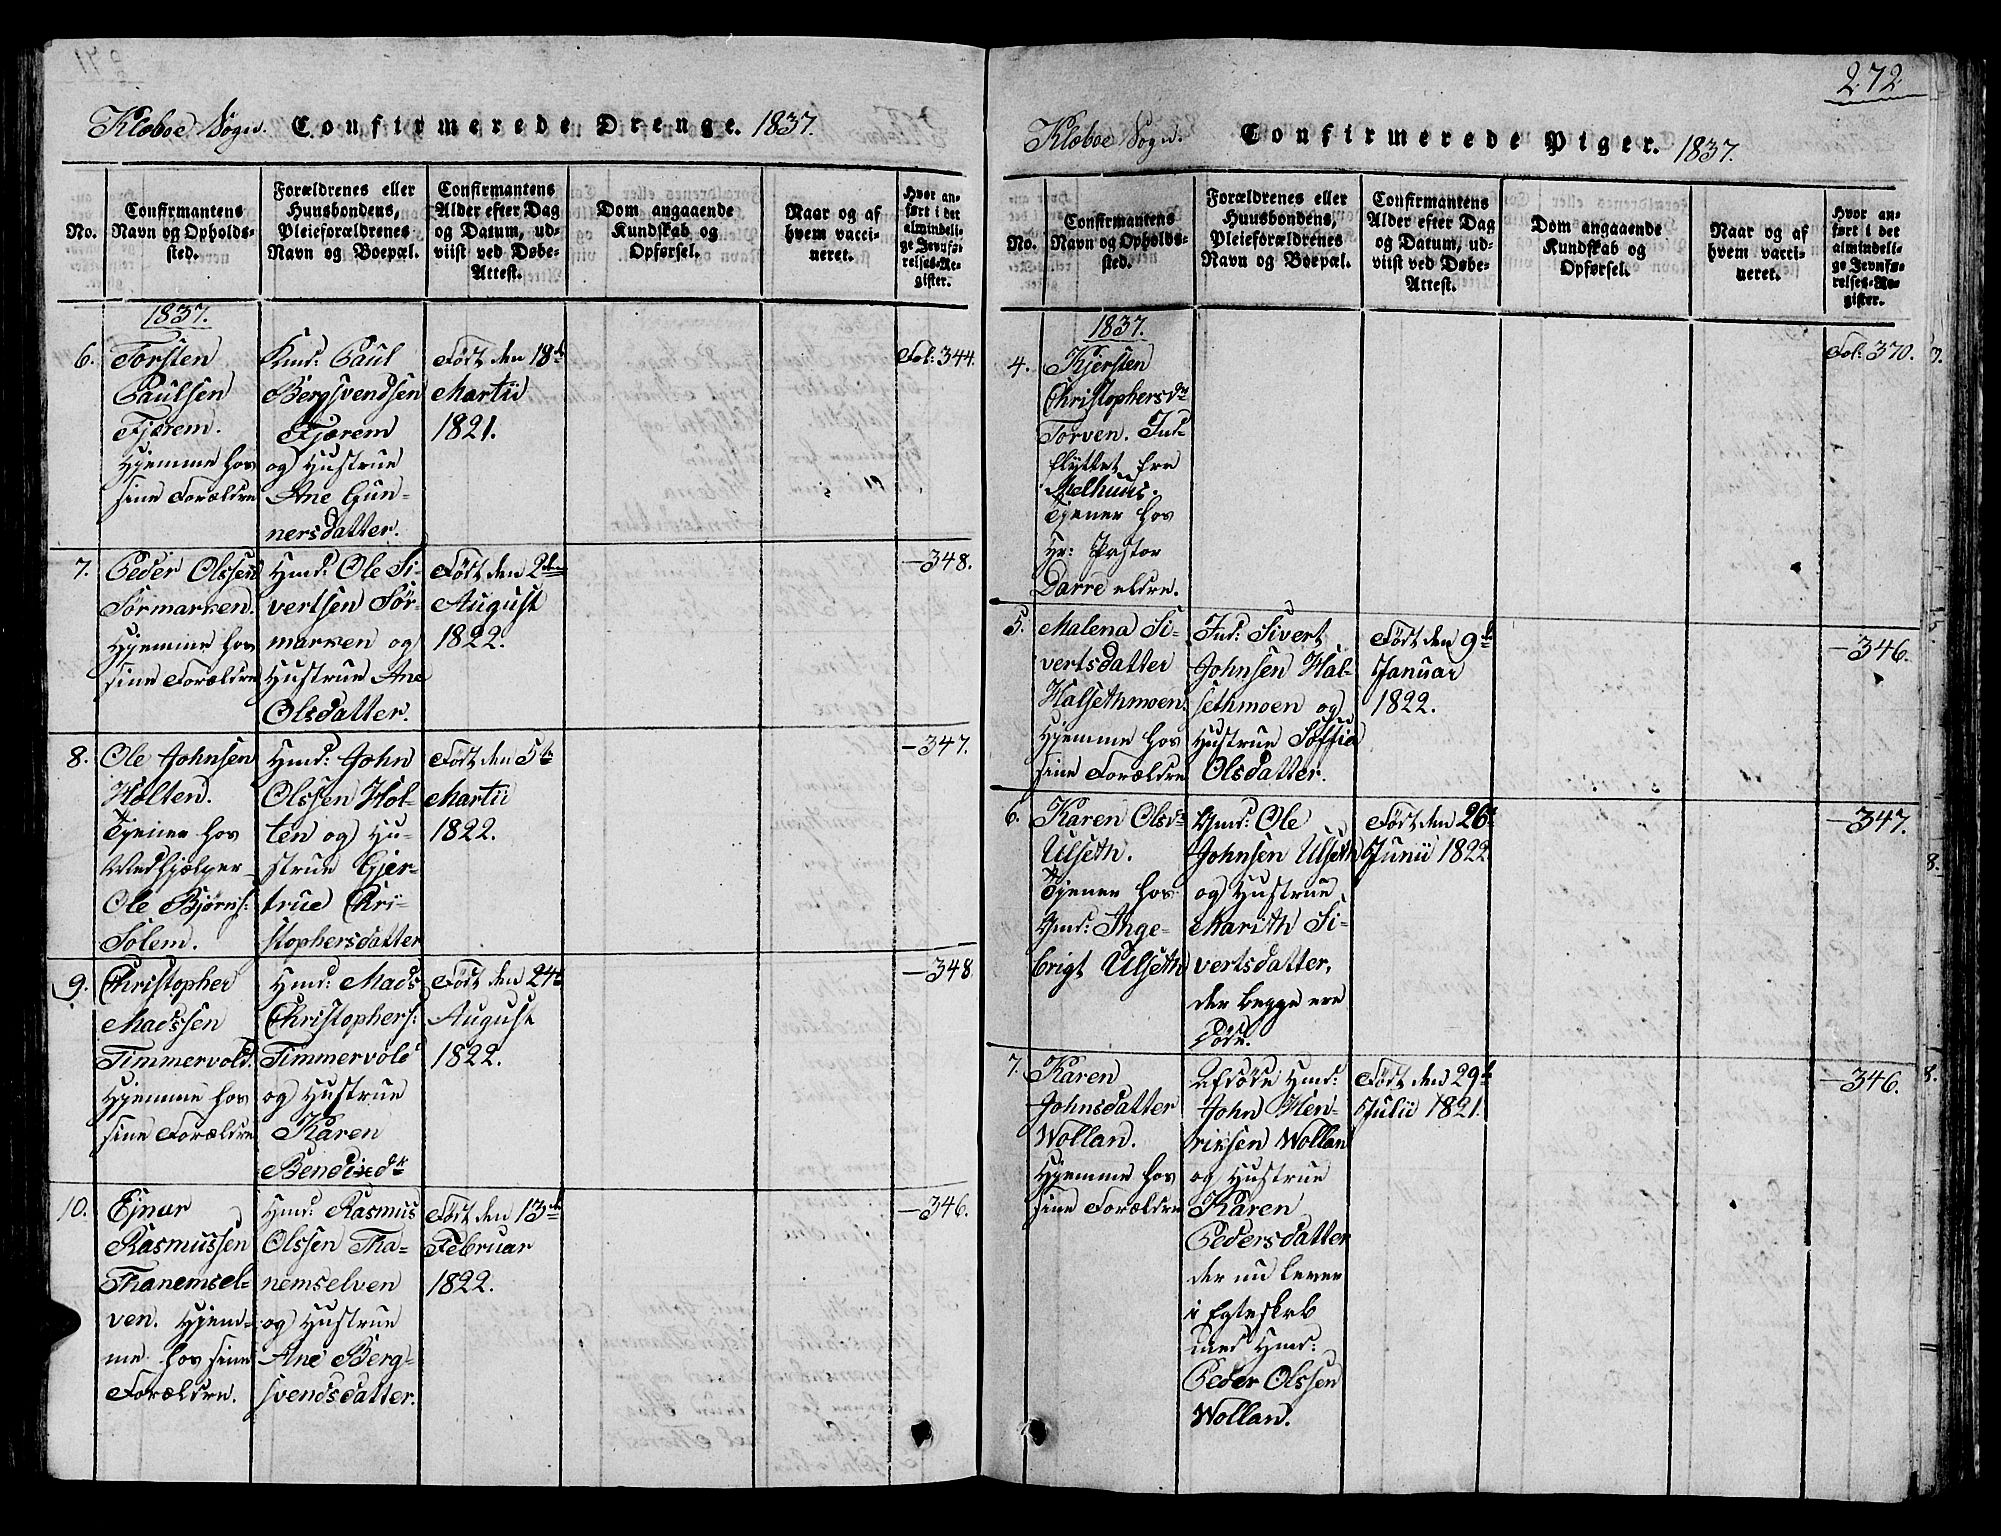 Klæboe Sogn. Confirmerede Drenge. 1837.
No.
Confirmantens
Navn og Opholds-
sted.
Forældrenes eller
Huusbondens,
Pleieforældrenes
Navn og Boepæl.
Confirmantens
Alder efter Dag
og Datum, ud-
viist ved Døbe-
Attest.
Dom angaaende
Kundskab og
Opførsel.
Naar og af
hvem vacci-
neret.
Hvor an-
ført i det
almindeli-
ge Jevnfø-
relses-Re-
gister.
1837.
6.
Torsten
Paulsen
Fjærem.
Hjemme hos
sine Forældre
Hmd: Paul
Bergsvendsen
Fjærem
og Hustrue
Ane Gun-
nersdatter.
Født den 18de
Martii
1821.
Fol: 344.
7.
Peder Olssen
Sørmarken.
Hjemme hos
sine Forældre
Hmd: Ole Si-
vertsen Sør-
marken og
Hustrue Ane
Olsdatter.
Født den 2den
August
1822.
—348.
8.
Ole Johnsen
Holten.
Tjener hos
Medhjælper
Ole Bjørns:
Solem.
Hmd: John
Olssen Hol-
ten og Hu-
strue Gjer-
true Chri-
stophersdatter
Født den 5te
Martii
1822.
—347.
9.
Christopher
Madssen
Timmervold.
Hjemme hos
sine Forældre
Hmd: Mads
Christophers:
Timmervold
og Hustrue
Karen
Født den 24de
August
1822.
—348
10.
Ejnar
Rasmussen
Thanemsel-
ven. Hjem-
me hos sine
Forældre.
Hmd: Rasmus
Olssen Tha-
nemselven
og Hustrue
Ane Berg-
svendsdatter.
Født den 13de
Februar
1822.
—346.
272
Klæboe Sogn. Confirmerede Piger. 1837.
No.
Confirmantens
Navn og Opholds-
sted.
Forældrenes eller
Huusbondens,
Pleieforældrenes
Navn og Boepæl.
Confirmantens
Alder efter Dag
og Datum, ud-
viist ved Døbe-
Attest.
Dom angaaende
Kundskab og
Opførsel.
Naar og af
hvem vacci-
neret.
Hvor an-
ført i det
almindeli-
ge Jevnfø-
relses-Re-
gister.
1837.
4.
Kjersten
Christophersdr
Torven. Ind-
flyttet fra
Melhuus.
Tjener hos
Hr: Pastor
Darre eldre.
Fol: 370.
5.
Malena Si-
vertsdatter
Halsethmoen.
Hjemme hos
sine Forældre
Ind: Sivert
Johnsen Hal-
sethmoen og
Hustrue Søffia
Olsdatter.
Født den 9de
Januar
1822.
—346.
6.
Karen Olsdr
Ulseth.
Tjener hos
Hmd: Inge-
brigt Ulseth
Hmd: Ole
Johnsen Ulseth
og Hustrue
Marith Si-
vertsdatter,
der begge ere
døde.
Født den 26de
Junii 1822
—347.
7.
Karen
Johnsdatter
Wollan.
Hjemme hos
sine Forældre
Afdøde Hmd:
John Hen-
riksen Wollan
og Hustrue
Karen
Pedersdatter
der nu lever
i Egteskab
med Hmd:
Peder Olssen
Wollan.
Født den 29de
Julii 1821.
—346.